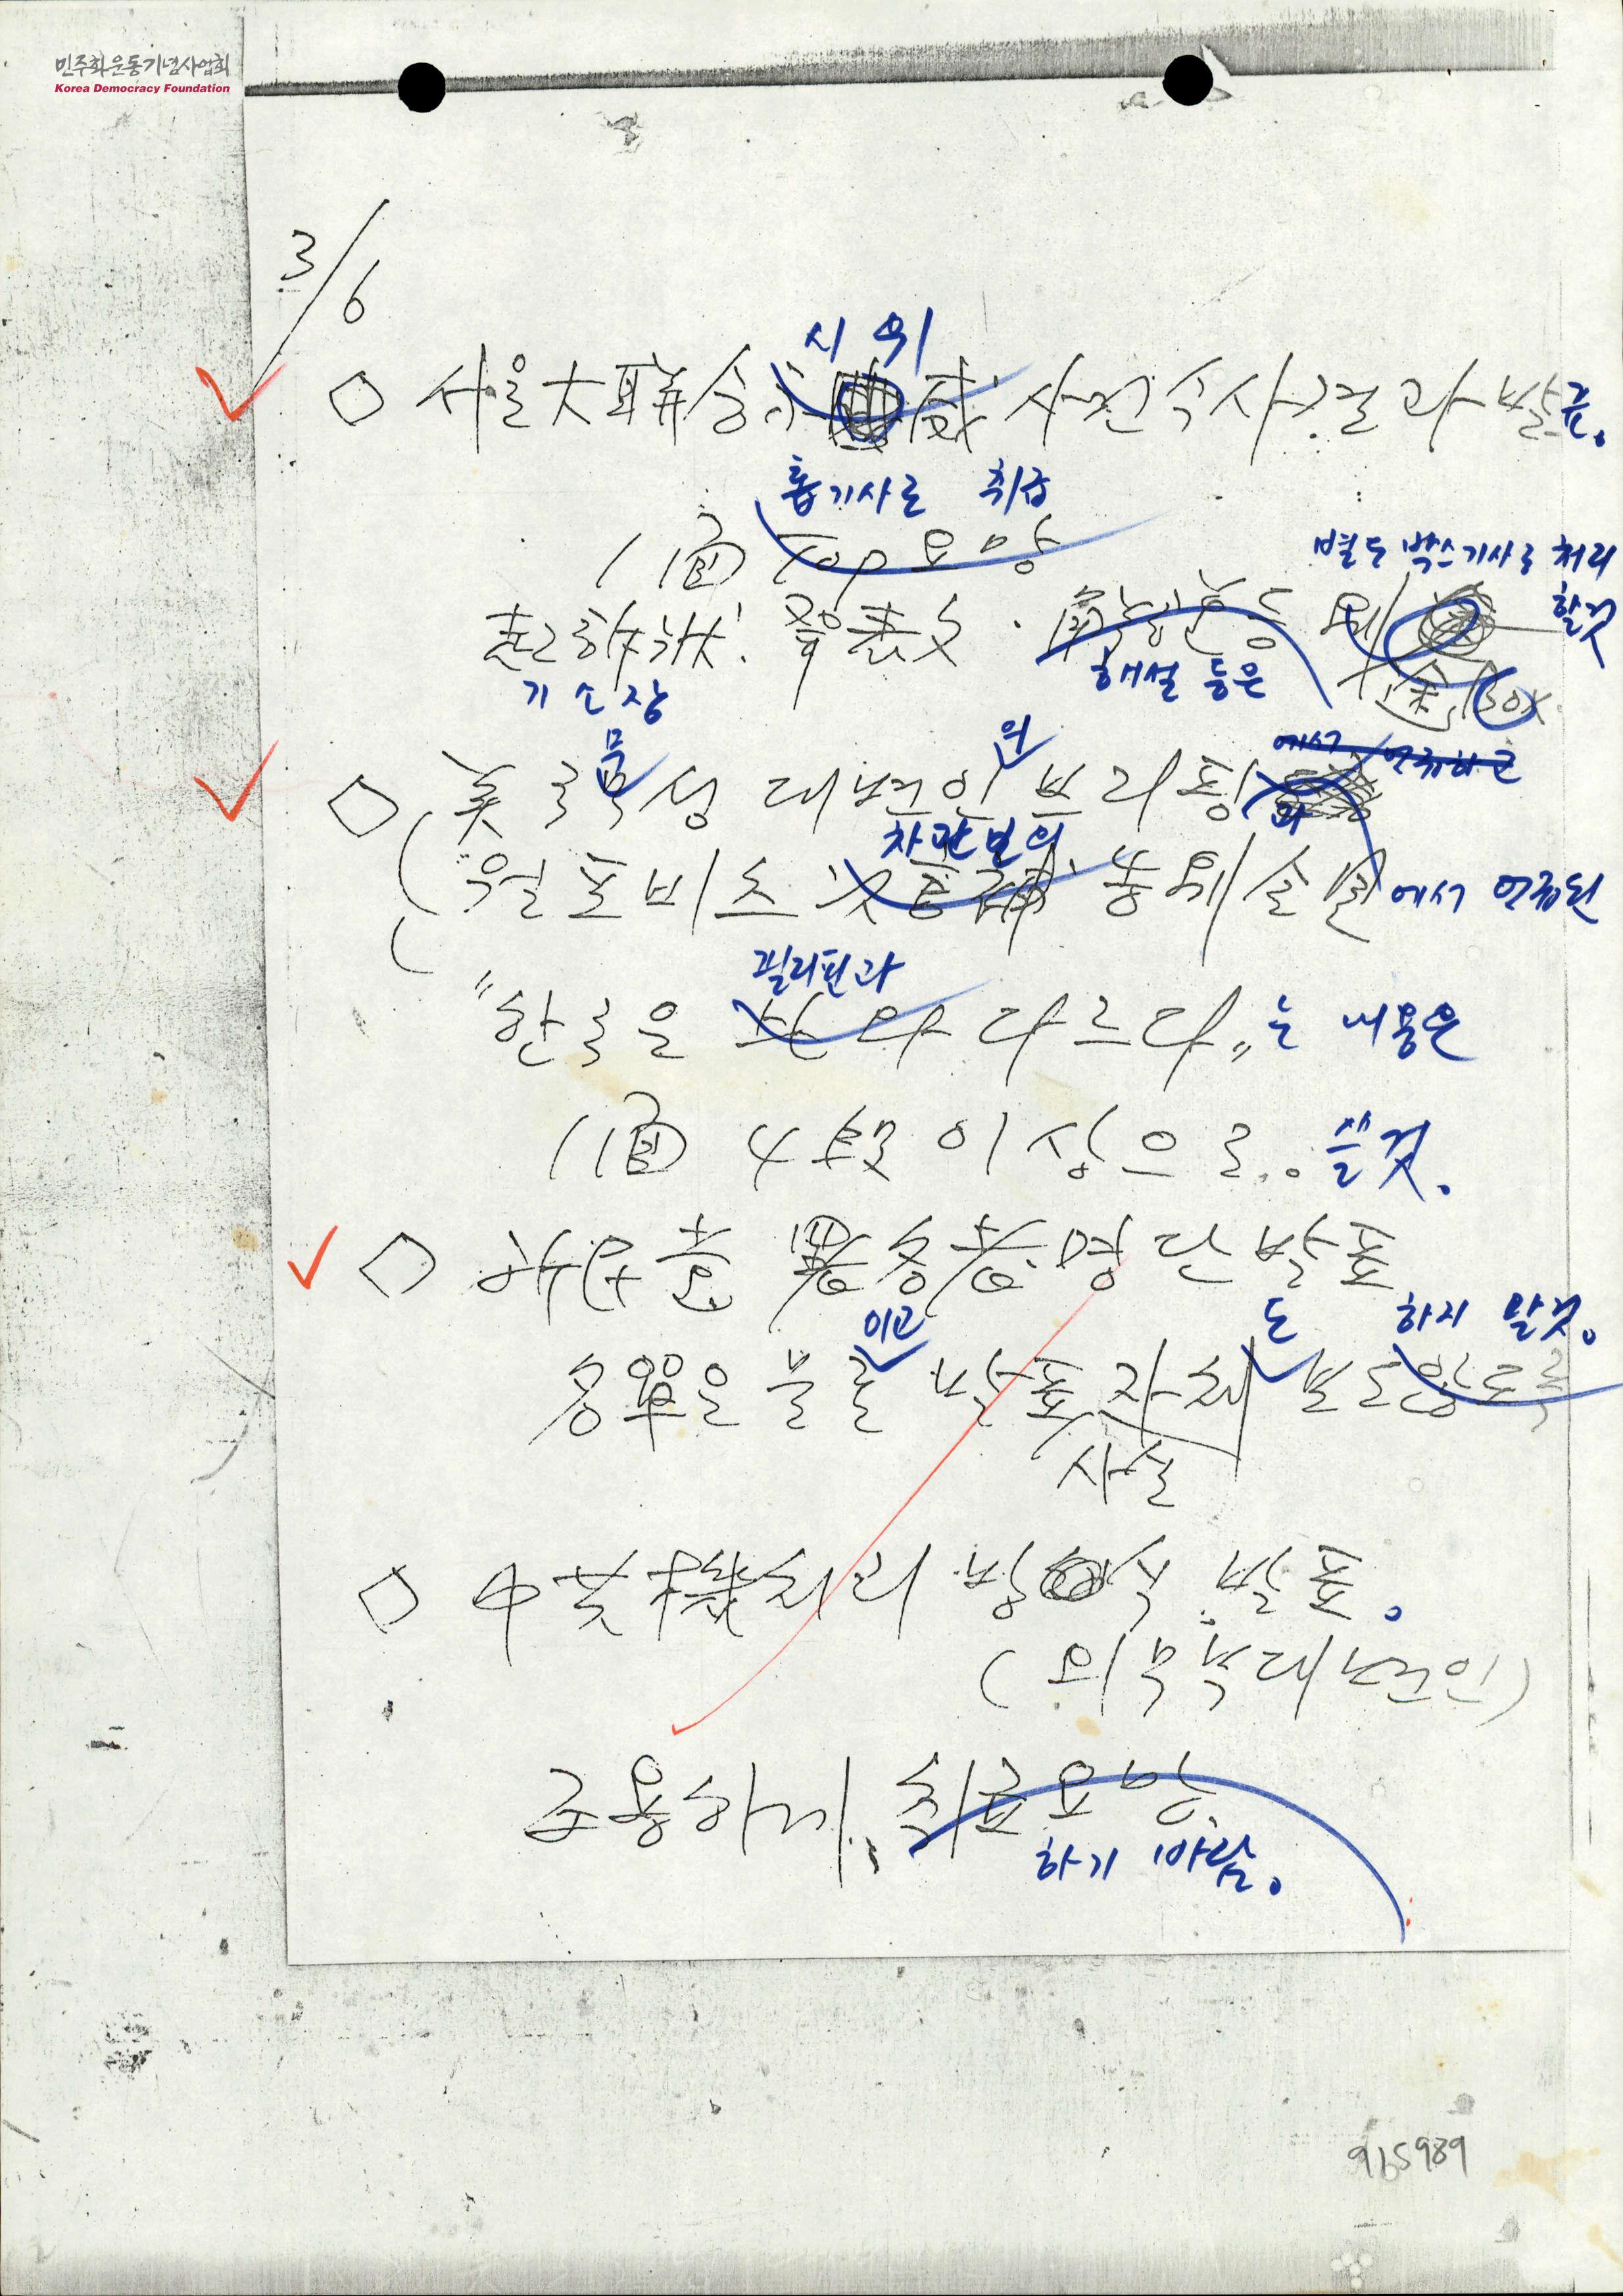 민주화운동기념사업회
Korea Democracy Foundation
3/6
시위
서울大聯合示威사건수사결과 발표.
톱기사로 취급
1面 Top요망
별도 박스기사로 처리
할것
起訴狀. 發表文.
기소장
해설 등은
Box
무
의
美국무성 대변인 브리핑
과
차관보의
"월포비츠 次官補 등의 증언
에서 언급된
필리핀과
"한국은 比와 다르다"
는 내용은
1面 4段 이상으로. 쓸것.
新民黨 署名者 명단발표
이고
도
하지 말것.
名單은 물론 발표자체 보도않도록
사실
中共機처리 방식 발표.
(외무부대변인)
조용하게 취급요망.
하기 바람.
915989